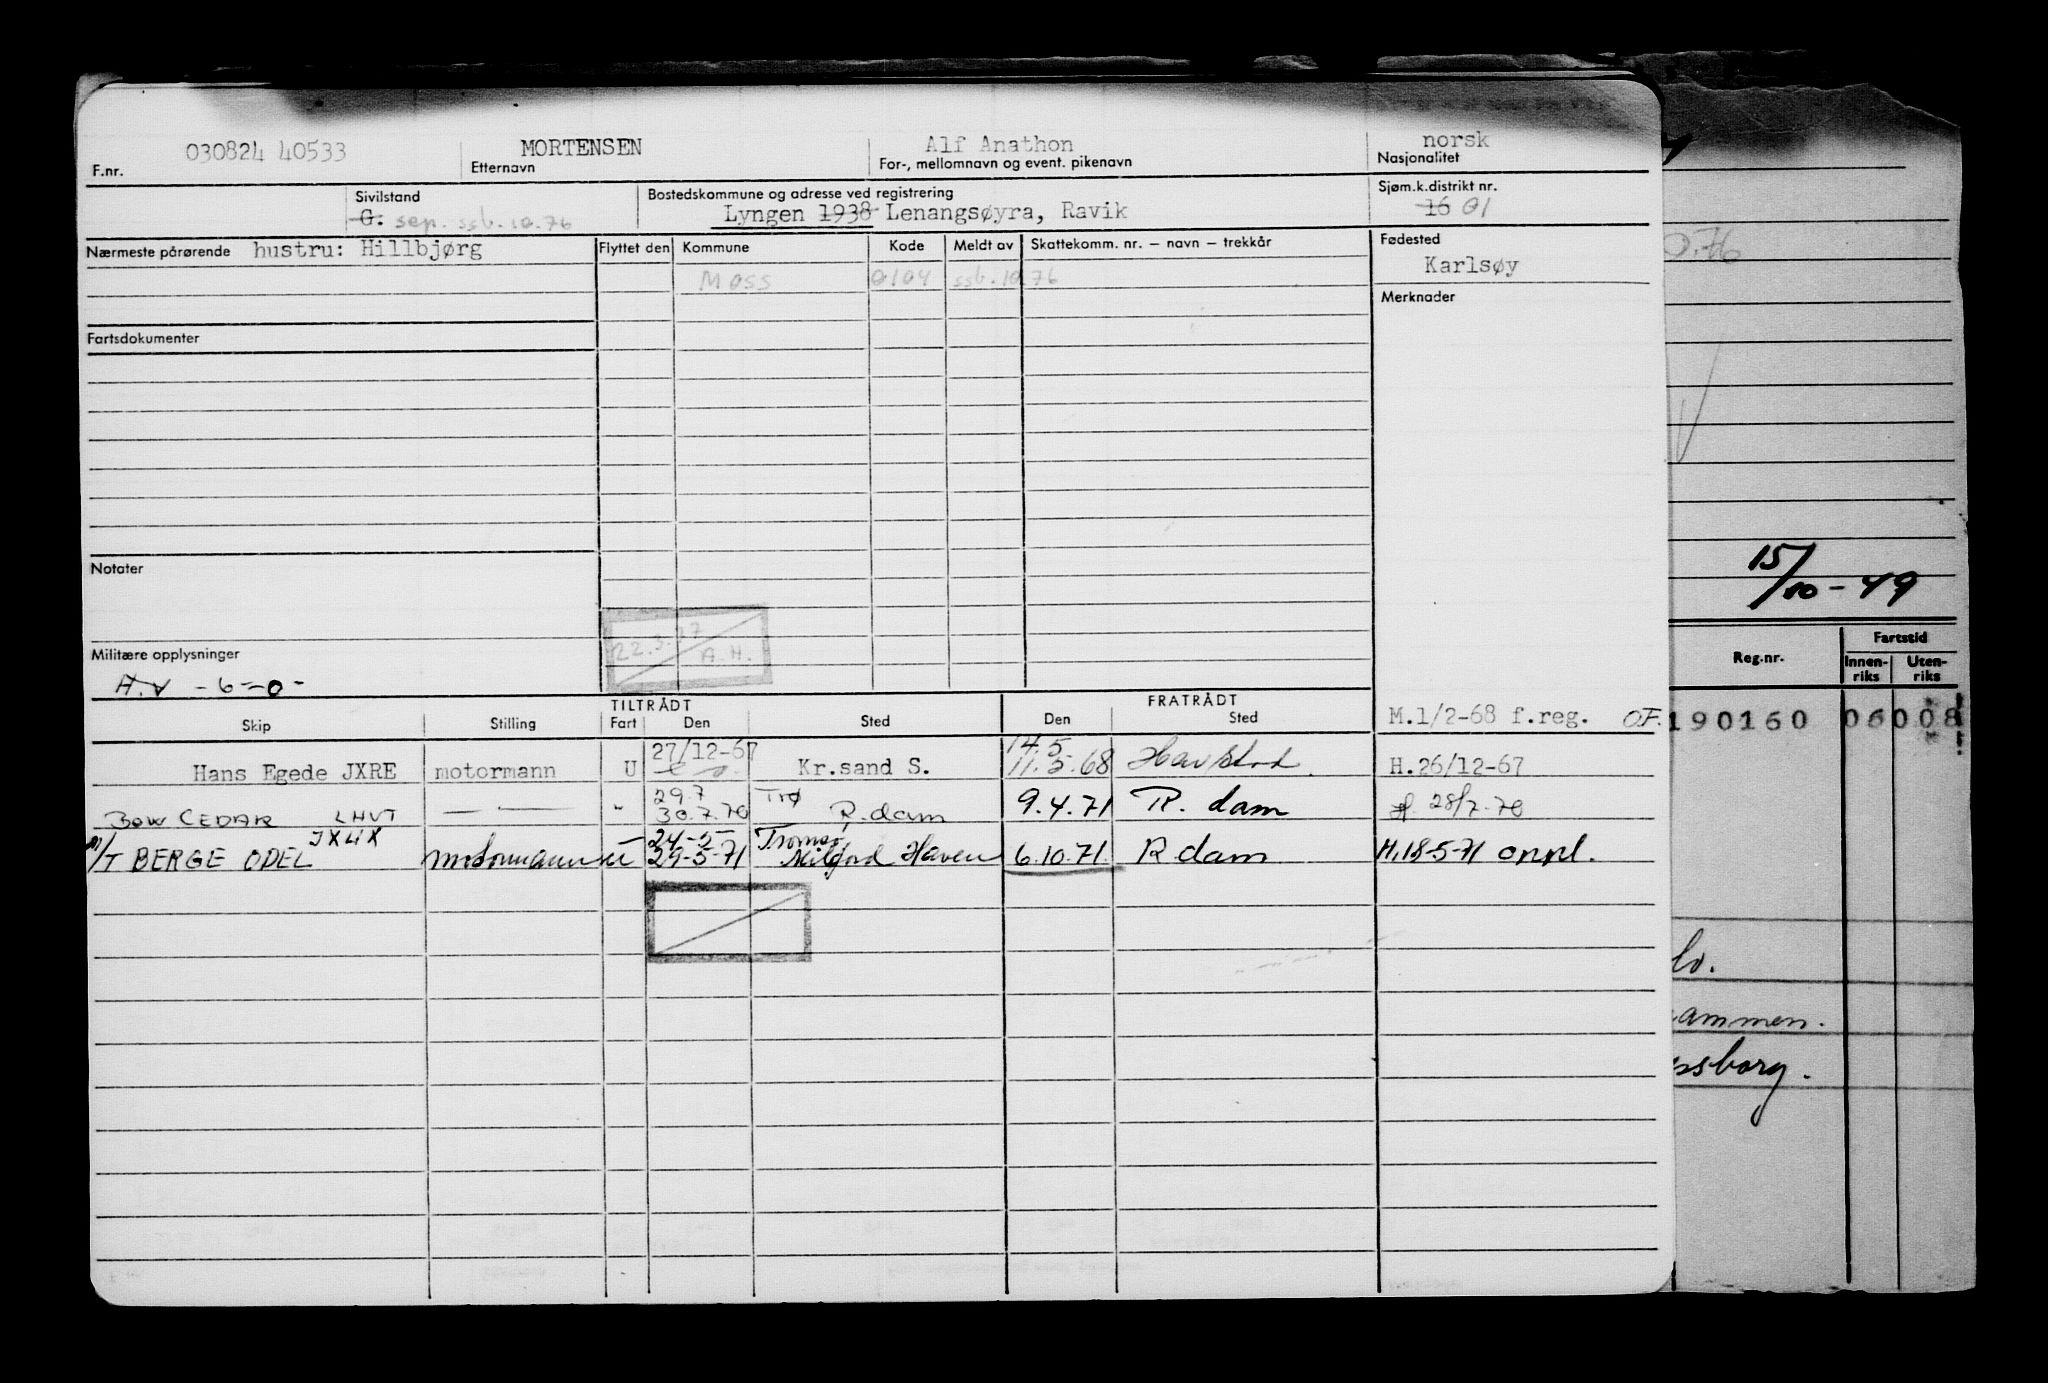 030824 40533 MORTENSEN Alf Anathon norsk
F.nr. Etternavn For-, mellomnavn og event. pikenavn Nasjonalitet
Sivilstand Bostedskommune og adresse ved registrering Sjøm.k.distrikt nr.
G. sep. ssb. 10.76 Lyngen 1938 Lenangsøyra, Ravik 16 01
Nærmeste pårørende hustru: Hillbjørg Flyttet den Kommune Kode Meldt av Skattekomm. nr. – navn – trekkår Fødested
Karlsøy
Moss 0104 ssb. 10.76
Merknader
Fartsdokumenter
15/10-49
Notater
22.3.77
A.H.
Militære opplysninger
A.v - 6-0-
Fartstid
Reg.nr. Innen-riks Uten-riks
TILTRÅDT FRATRÅDT
Skip Stilling Fart Den Sted Den Sted M.1/2-68 f.reg. O.F. 190160 06008
27/12-67 14.5
Hans Egede JXRE motormann U Kr.sand S. 11.5.68 Havstad H.26/12-67
29.7 Trø
Bow CEDAR LHVT — — " 30.7.70 R.dam 9.4.71 R. dam 28/7.70
JXLIX 24-5 Tromsø
M/T BERGE ODEL motormann 29-5-71 Milford Haven 6.10.71 R dam H.18-5-71 oppl.
lo.
ammen.
psborg.